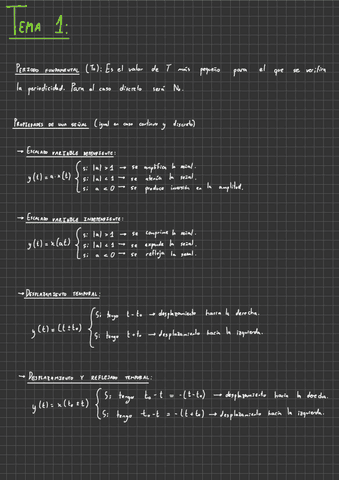 TEMA 1:
PERIODO FUNDAMENTAL (T₀): Es el valor de T más pequeño para el que se verifica
la periodicidad. Para el caso discreto será N₀.
PROPIEDADES DE UNA SEÑAL (igual en caso continuo y discreto)
→ ESCALADO VARIABLE DEPENDIENTE:
y(t) = a·x(t) { si |a| > 1 → se amplifica la señal.
si |a| < 1 → se atenúa la señal.
si a < 0 → se produce inversión en la amplitud.
→ ESCALADO VARIABLE INDEPENDIENTE:
y(t) = x(at) { si |a| > 1 → se comprime la señal.
si |a| < 1 → se expande la señal.
si a < 0 → se refleja la señal.
→ DESPLAZAMIENTO TEMPORAL:
y(t) = (t ± t₀) { Si tengo t - t₀ → desplazamiento hacia la derecha.
Si tengo t + t₀ → desplazamiento hacia la izquierda.
→ DESPLAZAMIENTO Y REFLEJADO TEMPORAL:
y(t) = x(t₀ ± t) { Si tengo t₀ - t = -(t - t₀) → desplazamiento hacia la derecha.
Si tengo t₀ - t = -(t + t₀) → desplazamiento hacia la izquierda.